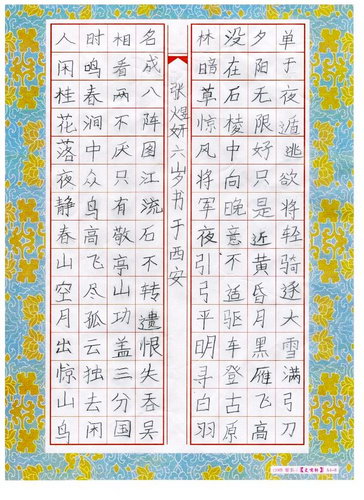 人闲桂花落夜静春山空月出惊山鸟
时鸣春涧中众鸟高飞尽孤云独去闲
相看两不厌只有敬亭山功盖三分国
名成八阵图江流石不转遗恨失吞吴
张煜妍六岁书于西安
林暗草惊风将军夜引弓平明寻白羽
没在石棱中向晚意不适驱车登古原
夕阳无限好只是近黄昏月黑雁飞高
单于夜遁逃欲将轻骑逐大雪满弓刀